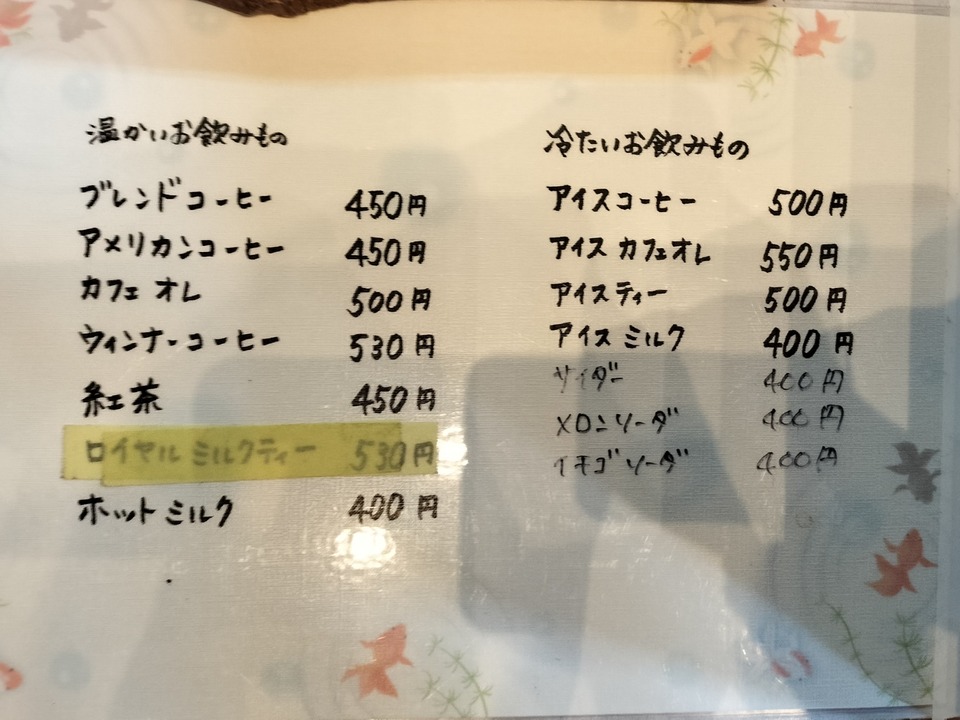 温かいお飲みもの
ブレンドコーヒー 450円
アメリカンコーヒー 450円
カフェオレ 500円
ウィンナーコーヒー 530円
紅茶 450円
ロイヤルミルクティー 530円
ホットミルク 400円
冷たいお飲みもの
アイスコーヒー 500円
アイスカフェオレ 550円
アイスティー 500円
アイスミルク 400円
サイダー 400円
メロンソーダ 400円
イチゴソーダ 400円